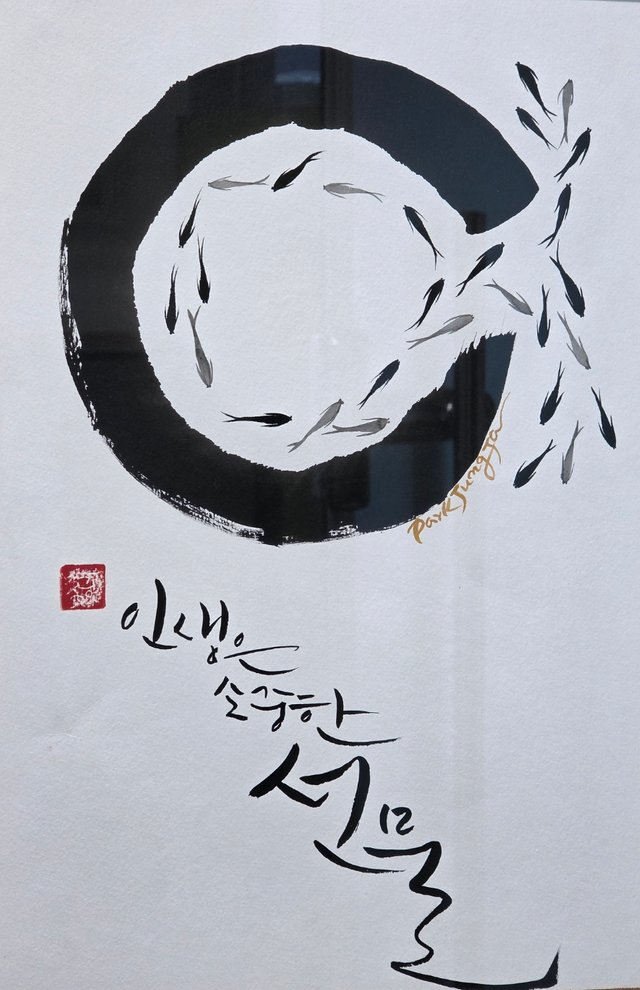 Park Jungja
인생은
소중한
선물